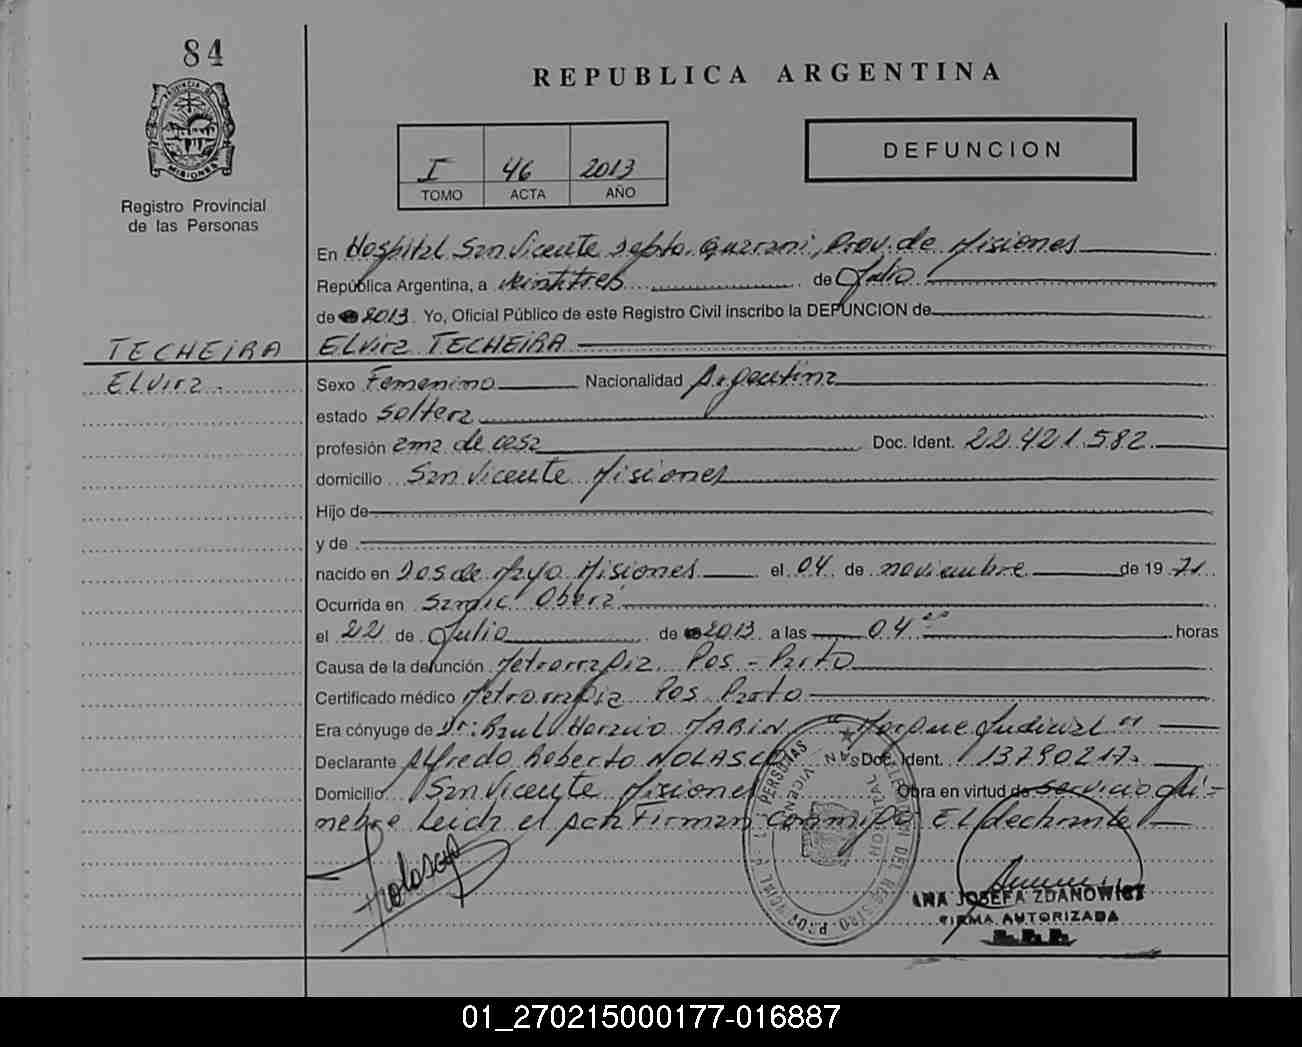 84
REPUBLICA ARGENTINA
PROVINCIA DE
MISIONES
Registro Provincial
de las Personas
I 46 2013
TOMO ACTA AÑO
DEFUNCION
En Hospital San Vicente Depto. Guarani, Prov. de Misiones
República Argentina, a veintitres de Julio
de 2013 Yo, Oficial Público de este Registro Civil inscribo la DEFUNCION de
TECHEIRA
Elvira TECHEIRA
Elvira
Sexo Femenino Nacionalidad Argentina
estado soltera
profesión ama de casa Doc. Ident. 22.421.582
domicilio San Vicente Misiones
Hijo de
y de
nacido en Dos de Mayo Misiones el 04 de noviembre de 1971
Ocurrida en Samic Oberá
el 22 de Julio de 2013 a las 04 horas
Causa de la defunción Metrorragia Pos-Parto
Certificado médico Metrorragia Pos Parto
Era cónyuge de Dr: Raul Horacio MARIN "Morgue Judicial"
Declarante Alfredo Roberto NOLASCO Doc. Ident. 13790217
Domicilio San Vicente Misiones Obra en virtud de servicio fú=
nebre Leida el acta Firman conmigo El declarante
Nolasco
ANA JOSEFA ZDANOWICZ
FIRMA AUTORIZADA
01_270215000177-016887